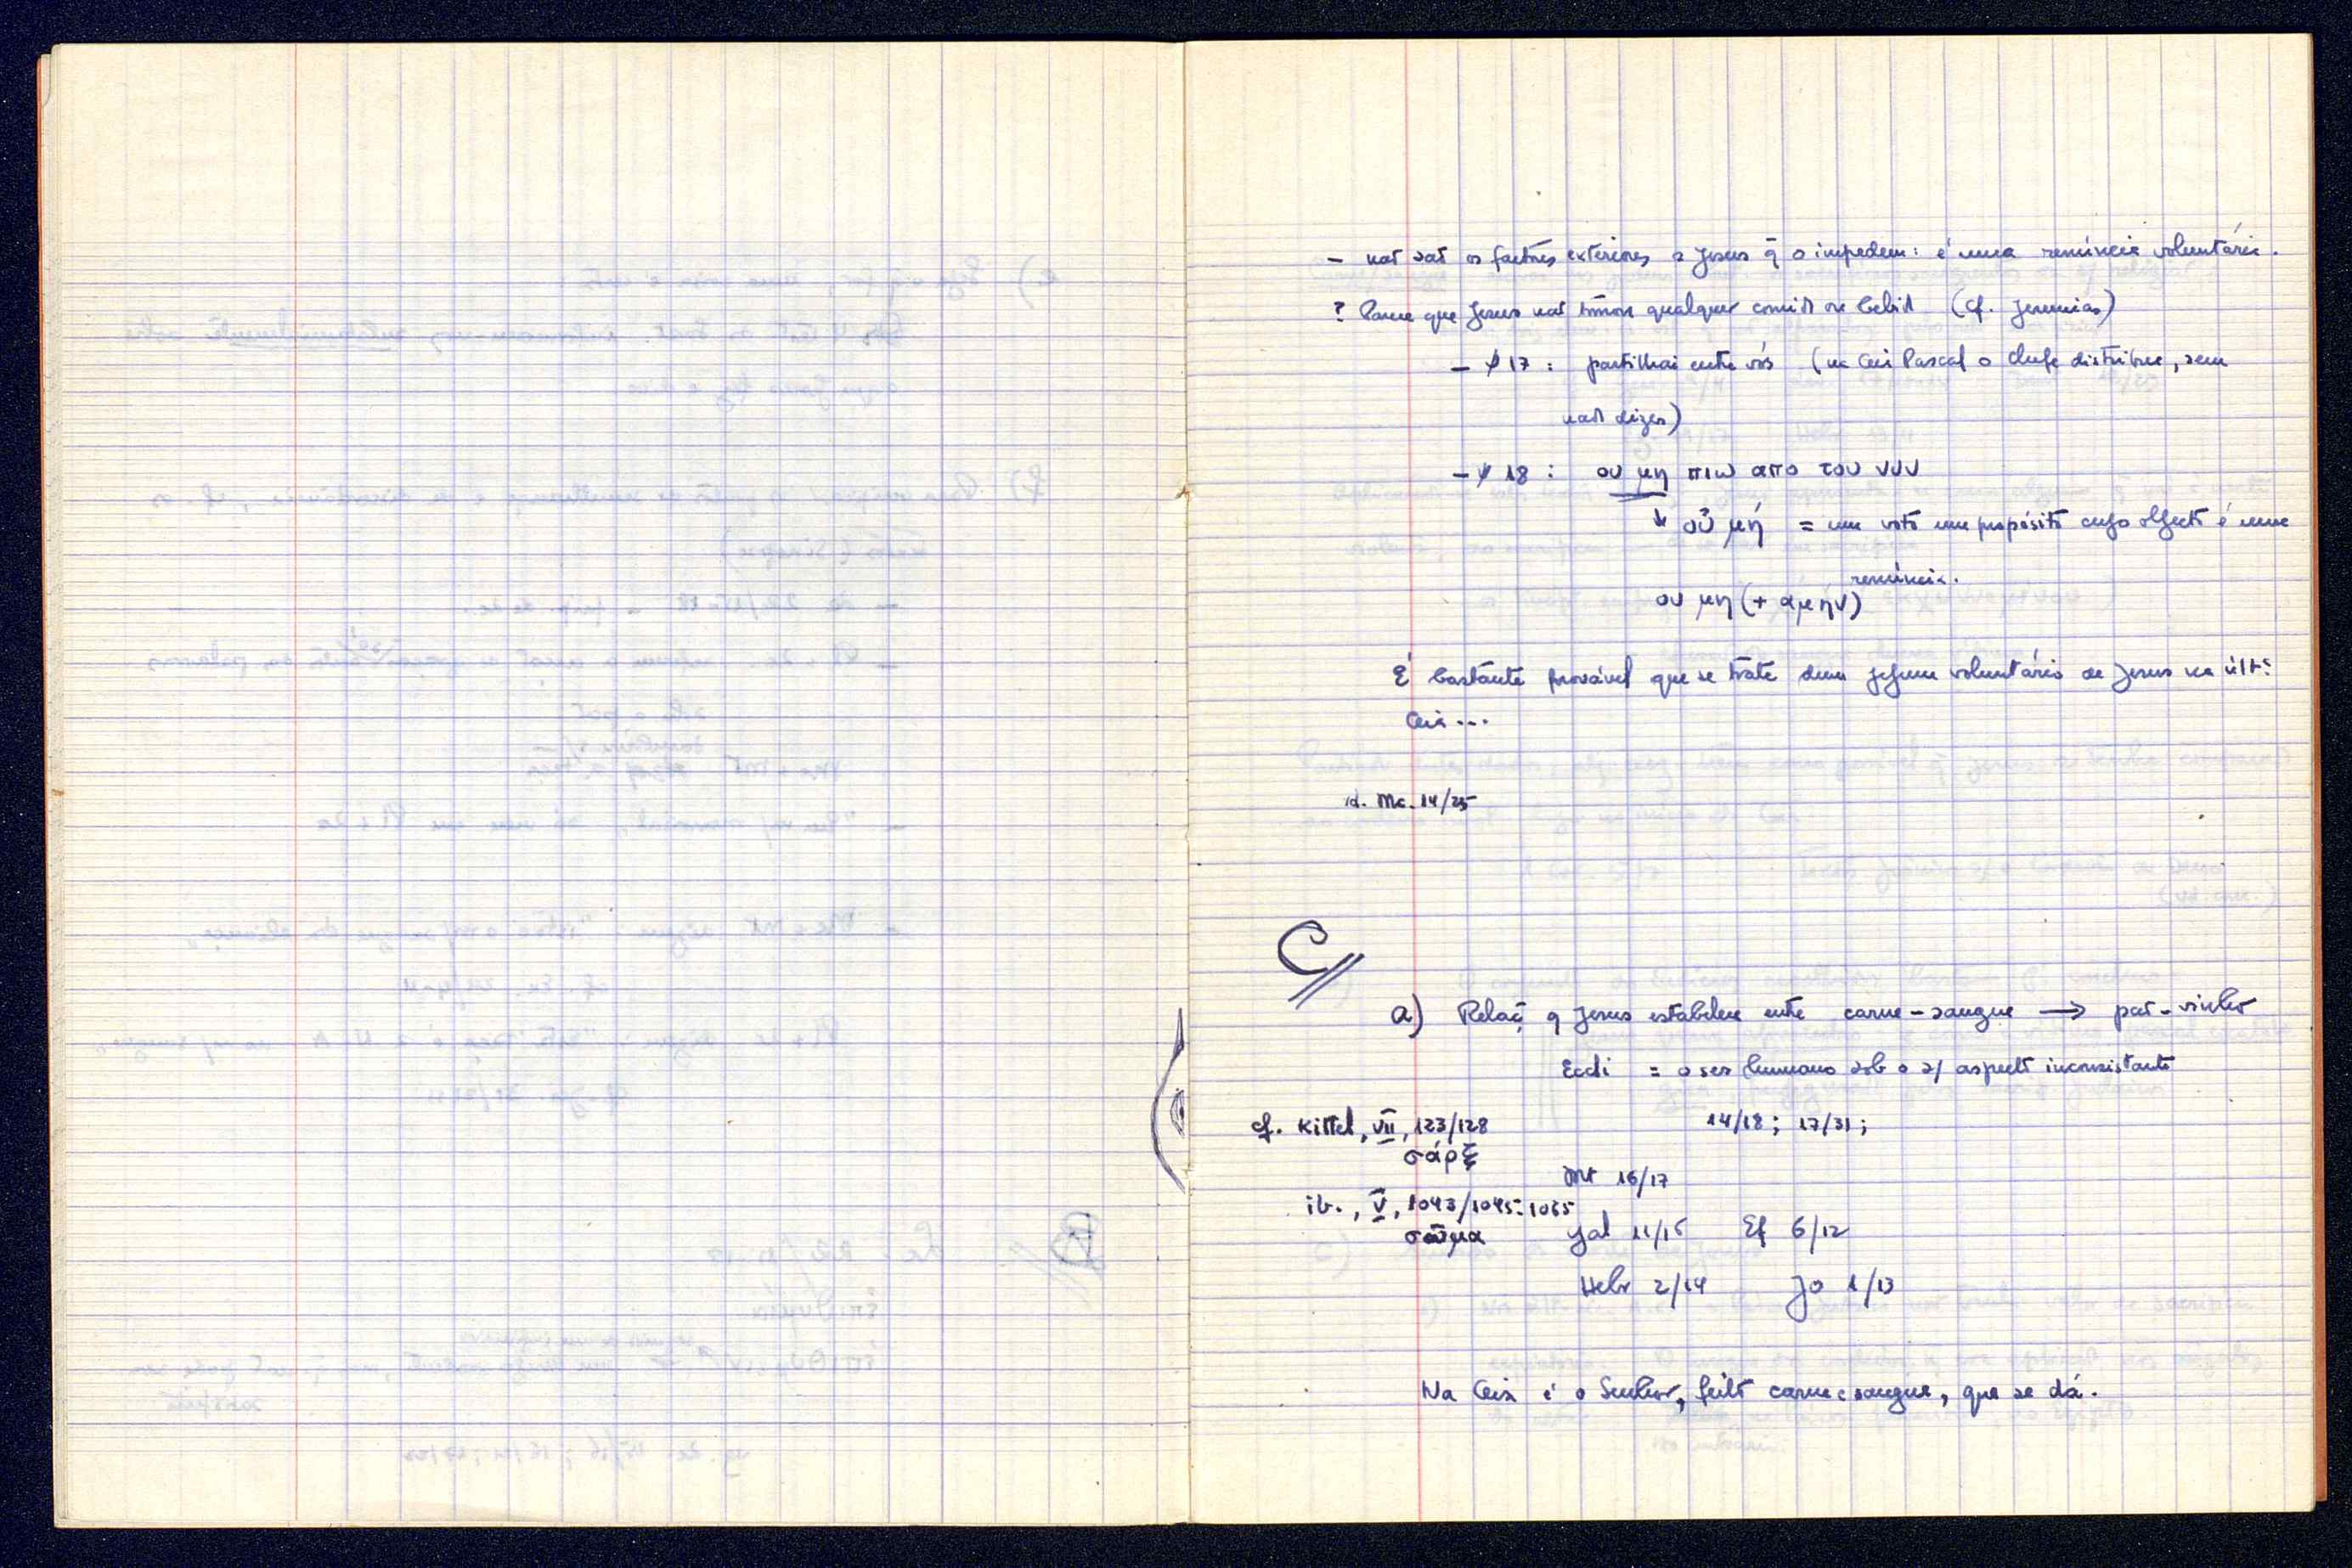 — não são os factores exteriores a Jesus q̃ o impedem: é uma renúncia voluntária.
? Parece que Jesus não tomou qualquer comida ou bebida (cf. Jeremias)
— ℣ 17 : partilhai entre vós (na Ceia Pascal o chefe distribue, sem
nada dizer)
— ℣ 18 : ου μη πιω απο του νυν
↓ οὐ μή = um voto um propósito cujo objecto é uma
renúncia.
ου μη (+ αμην)
É bastante provável que se trate dum jejum voluntário de Jesus na últ.ª
Ceia ...
id. Mc. 14/25
C//
a) Relaç. q Jesus estabelece entre carne-sangue → pão-vinho
Ecdi = o ser humano sob o s/ aspecto inconsistente
cf. Kittel, VII, 123/128 14/18 ; 17/31 ;
σάρξ
Mt 16/17
ib., V, 1043/1045-1065
σῶμα Gal 11/15 Ef 6/12
Hebr 2/14 Jo 1/13
Na Ceia é o Senhor, feito carne e sangue, que se dá.